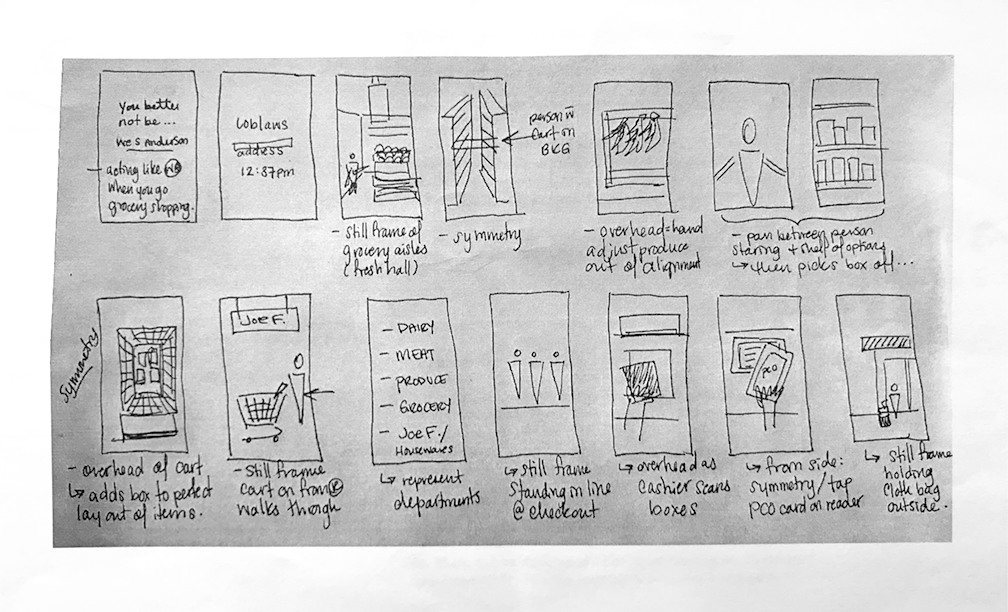 You better
not be...
Wes Anderson
acting like
when you go
grocery shopping.
Loblaws
address
12:37pm
- still frame of
grocery aisles
(fresh hall)
- symmetry
person w
cart on
BKG
- overhead = hand
adjust produce
out of alignment
- pan between person
staring + shelf of options
↳ then picks box off...
symmetry
- overhead of cart
↳ adds box to perfect
layout of items.
Joe F.
- still frame
cart on from
walks through
- DAIRY
- MEAT
- PRODUCE
- GROCERY
- Joe F./
Housewares
↳ represent
departments
↳ still frame
standing in line
@ checkout
↳ overhead as
cashier scans
boxes
PCO
↳ from side:
symmetry/tap
PCO card on reader
↳ still frame
holding
cloth bag
outside.